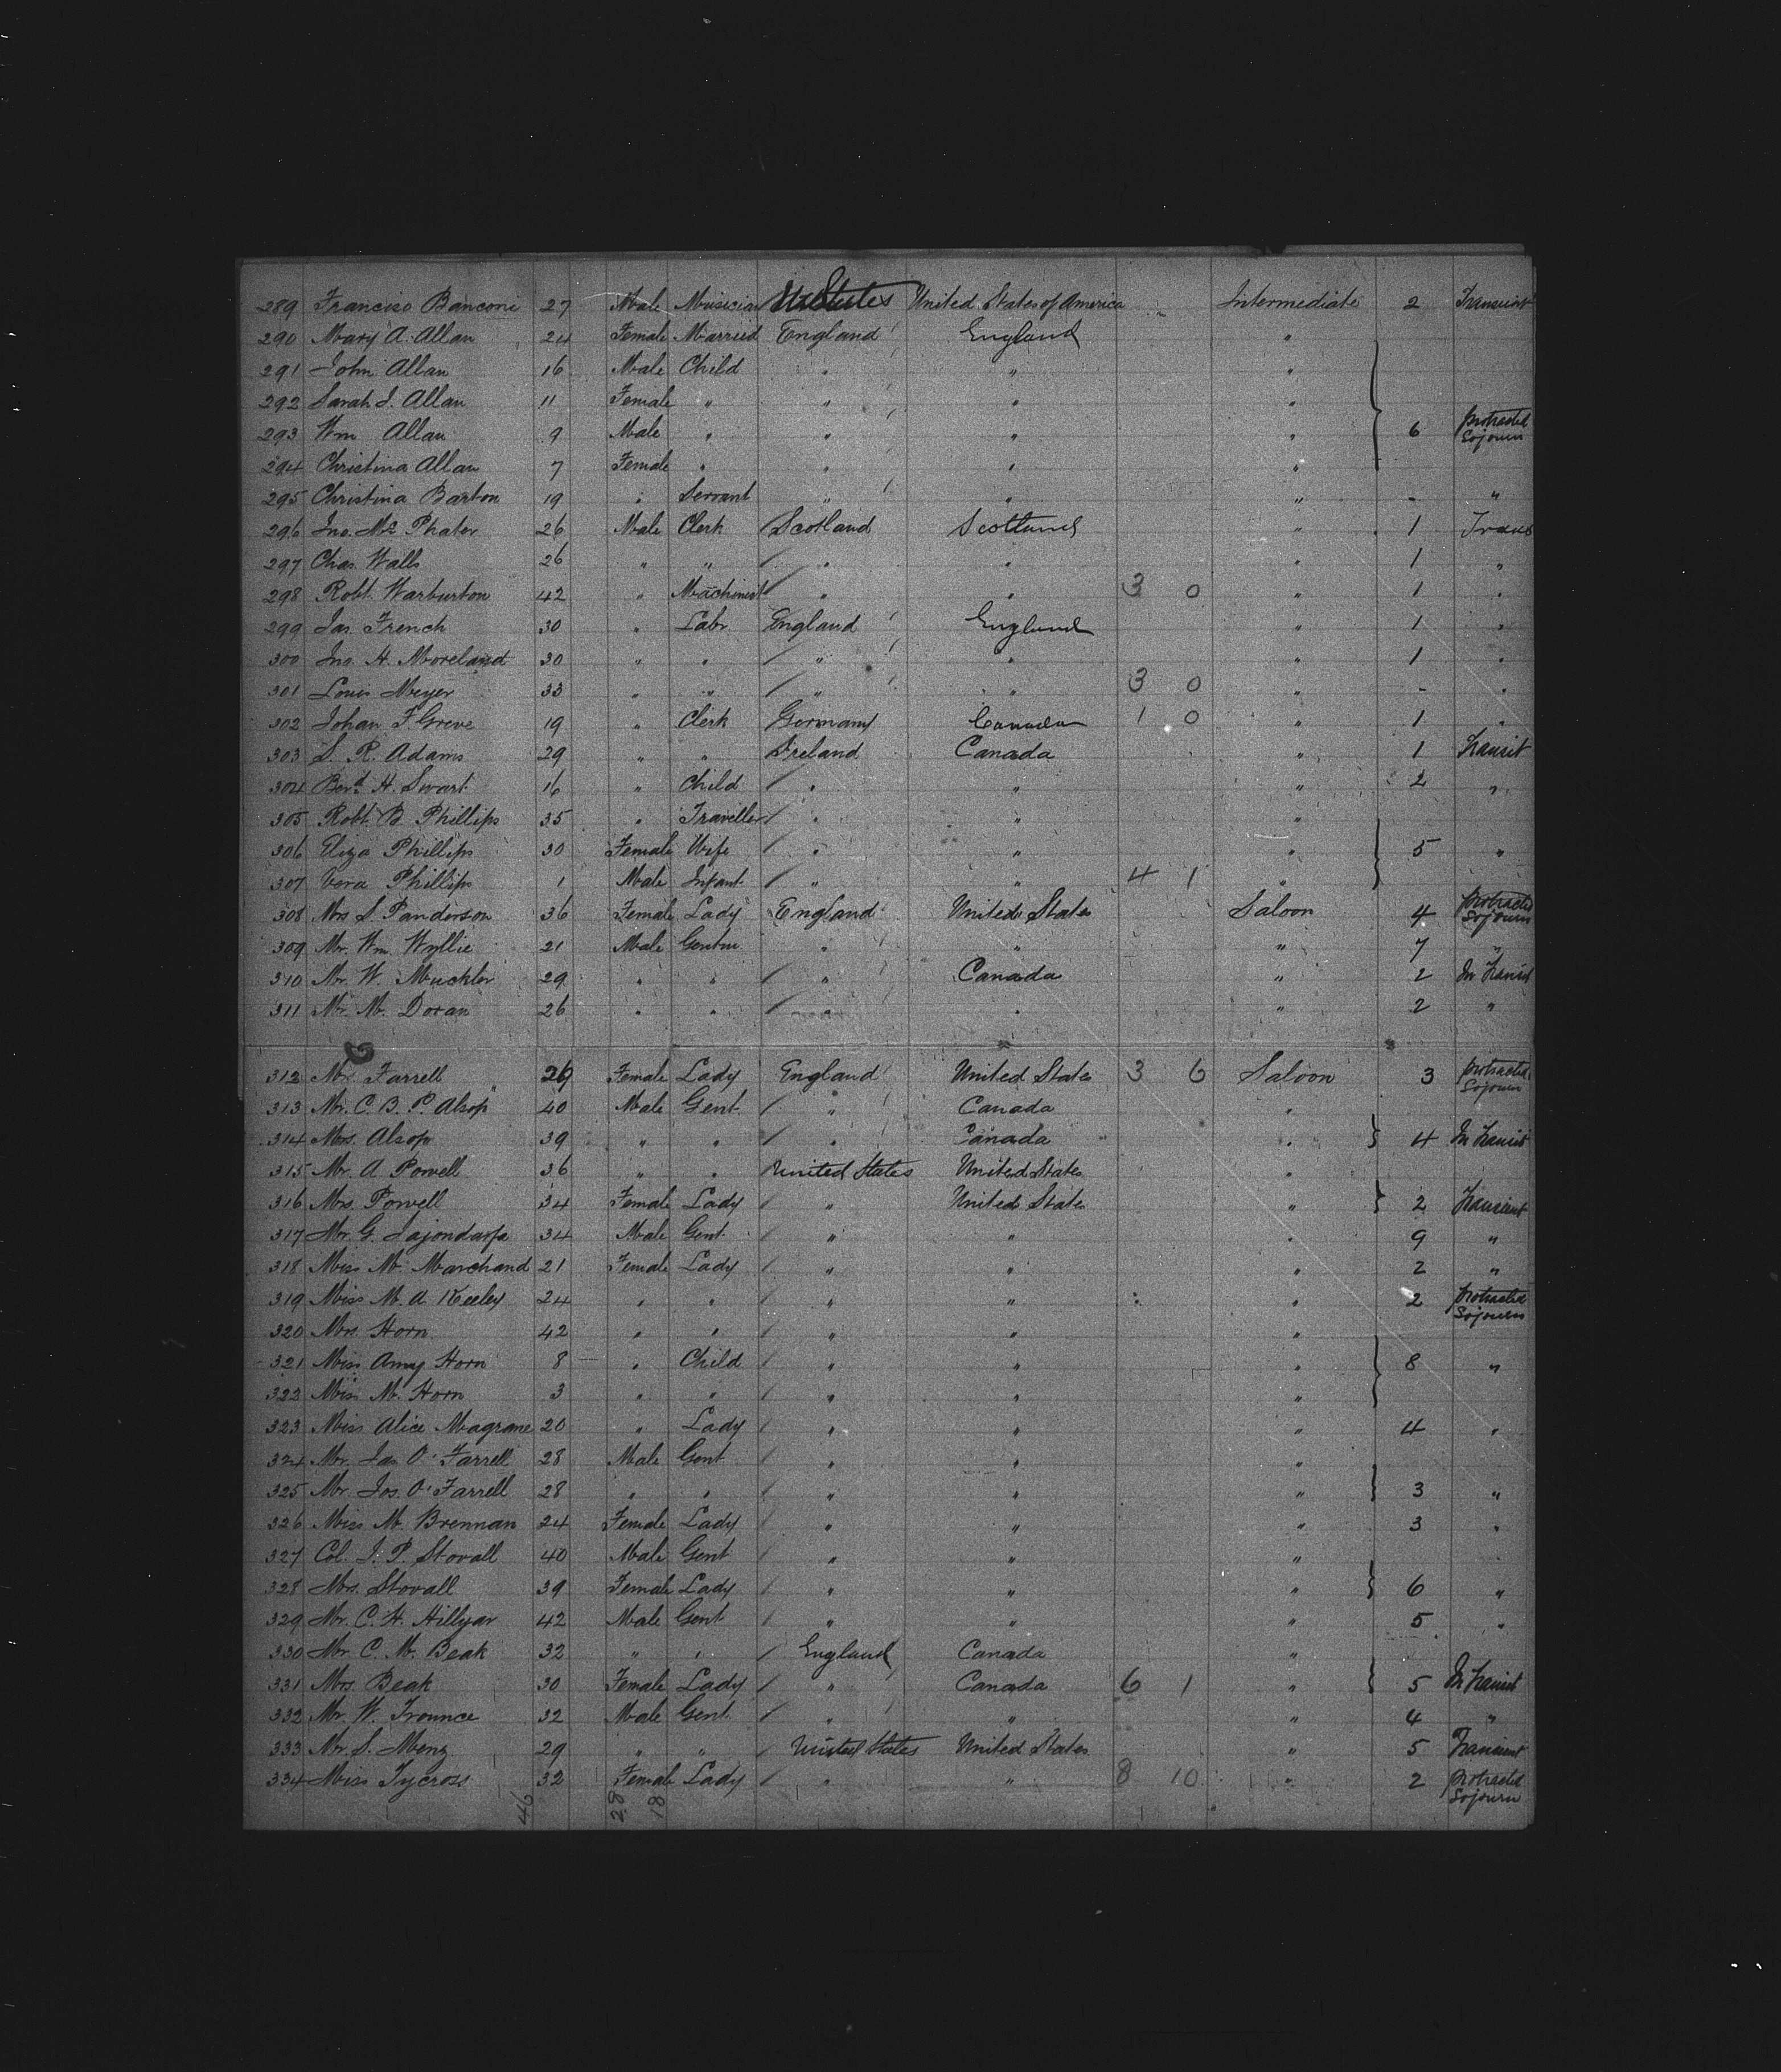 289 Franciso Bancone 27 Male Musician U. States United States of America " Intermediate 2 Transient
290 Mary A. Allan 24 Female Married England England "
291 John Allan 16 Male Child " " "
292 Sarah J. Allan 11 Female " " " "
293 Wm Allan 9 Male " " " " 6 protracted sojourn
294 Christina Allan 7 Female " " " "
295 Christina Barton 19 " Servant " " " - "
296 Jno. Mc Phater 26 Male Clerk Scotland Scotland " 1 Trans
297 Chas. Walls 26 " " " " " 1 "
298 Robt. Warburton 42 " Machinist " " 3 0 " 1 "
299 Jas. French 30 " Labr England England " 1 "
300 Jno. H. Moreland 30 " " " " " 1 "
301 Louis Meyer 33 " " " " 3 0 " - "
302 Johan F. Greve 19 " Clerk Germany Canada 1 0 " 1 "
303 S. R. Adams 29 " " Ireland Canada " 1 Transit
304 Berd H. Swart 16 " Child " " " 2 "
305 Robt. B Phillips 35 " Traveller " " "
306 Eliza Phillips 30 Female Wife " " " 5 "
307 Vera Phillips 1 Male Infant " " 4 1 "
308 Mrs S. Panderson 36 Female Lady England United States Saloon 4 protracted sojourn
309 Mr. Wm. Wyllie 21 Male Gentm " " " 7 "
310 Mr. W. Muckler 29 " " " Canada " 2 In Transit
311 Mr. M. Doran 26 " " " " " 2 "
312 Mrs Farrell 26 Female Lady England United States 3 6 Saloon 3 protracted sojourn
313 Mr. C. B. P. Alsop 40 Male Gent. " Canada "
314 Mrs. Alsop 39 " " " Canada " 4 In Transit
315 Mr. A Powell 36 " " United States United States "
316 Mrs. Powell 34 Female Lady " United States " 2 Transient
317 Mr. G. 34 Male Gent. " " " 9 "
318 Miss M. Marchand 21 Female Lady " " " 2 "
319 Miss M. A Keeley 24 " " " " " 2 protracted sojourn
320 Mrs. Horn 42 " " " " "
321 Miss Amy Horn 8 " Child " " " 8 "
322 Miss M. Horn 3 " " " " "
323 Miss Alice Magrane 20 " Lady " " " 4 "
324 Mr. Jas. O'Farrell 28 Male Gent " " "
325 Mr. Jos. O'Farrell 28 " " " " " 3 "
326 Miss M. Brennan 24 Female Lady " " " 3 "
327 Col. J. P. Stovall 40 Male Gent " " "
328 Mrs. Stovall 39 Female Lady " " " 6 "
329 Mr. C. H. Hillyar 42 Male Gent. " " " 5 "
330 Mr. C. M. Beak 32 " " England Canada "
331 Mrs. Beak 30 Female Lady " Canada 6 1 " 5 In Transit
332 Mr. W. Trounce 32 Male Gent. " " " 4 "
333 Mr S. Meng 29 " " United States United States " 5 Transient
334 Miss Tycross 32 Female Lady " " 8 10 " 2 protracted sojourn
46 28 18